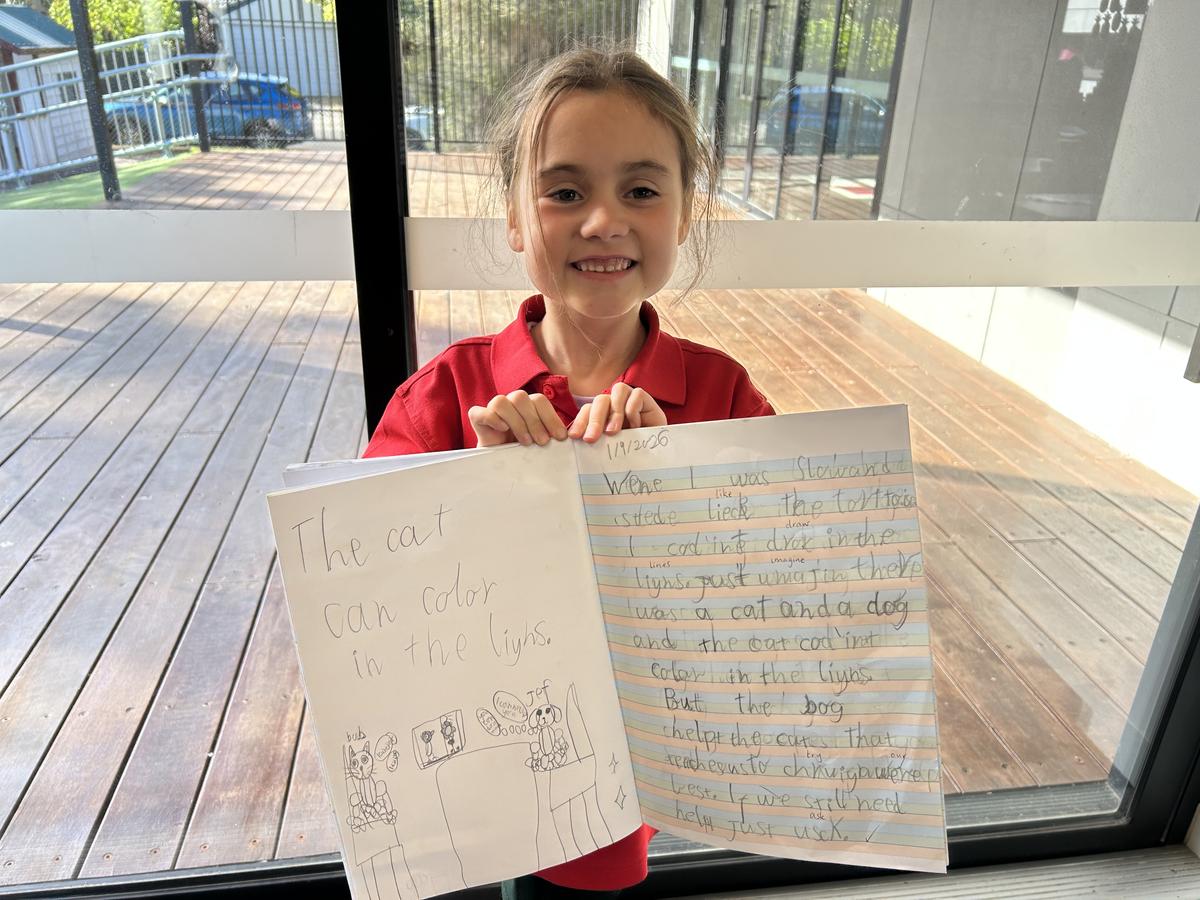 The cat
can color
in the liyns.
bub
Jef
1/9/2026
Wene I was Slowand
stede lieck the torttoise
like
I cod'int dror in the
draw
liyns. just umajin there
lines imagine
was a cat and a dog
and the cat cod'int
color in the liyns.
But the bog
helpt the cat. that
teaches us to
try our
best. If we still need
help just usck.
ask